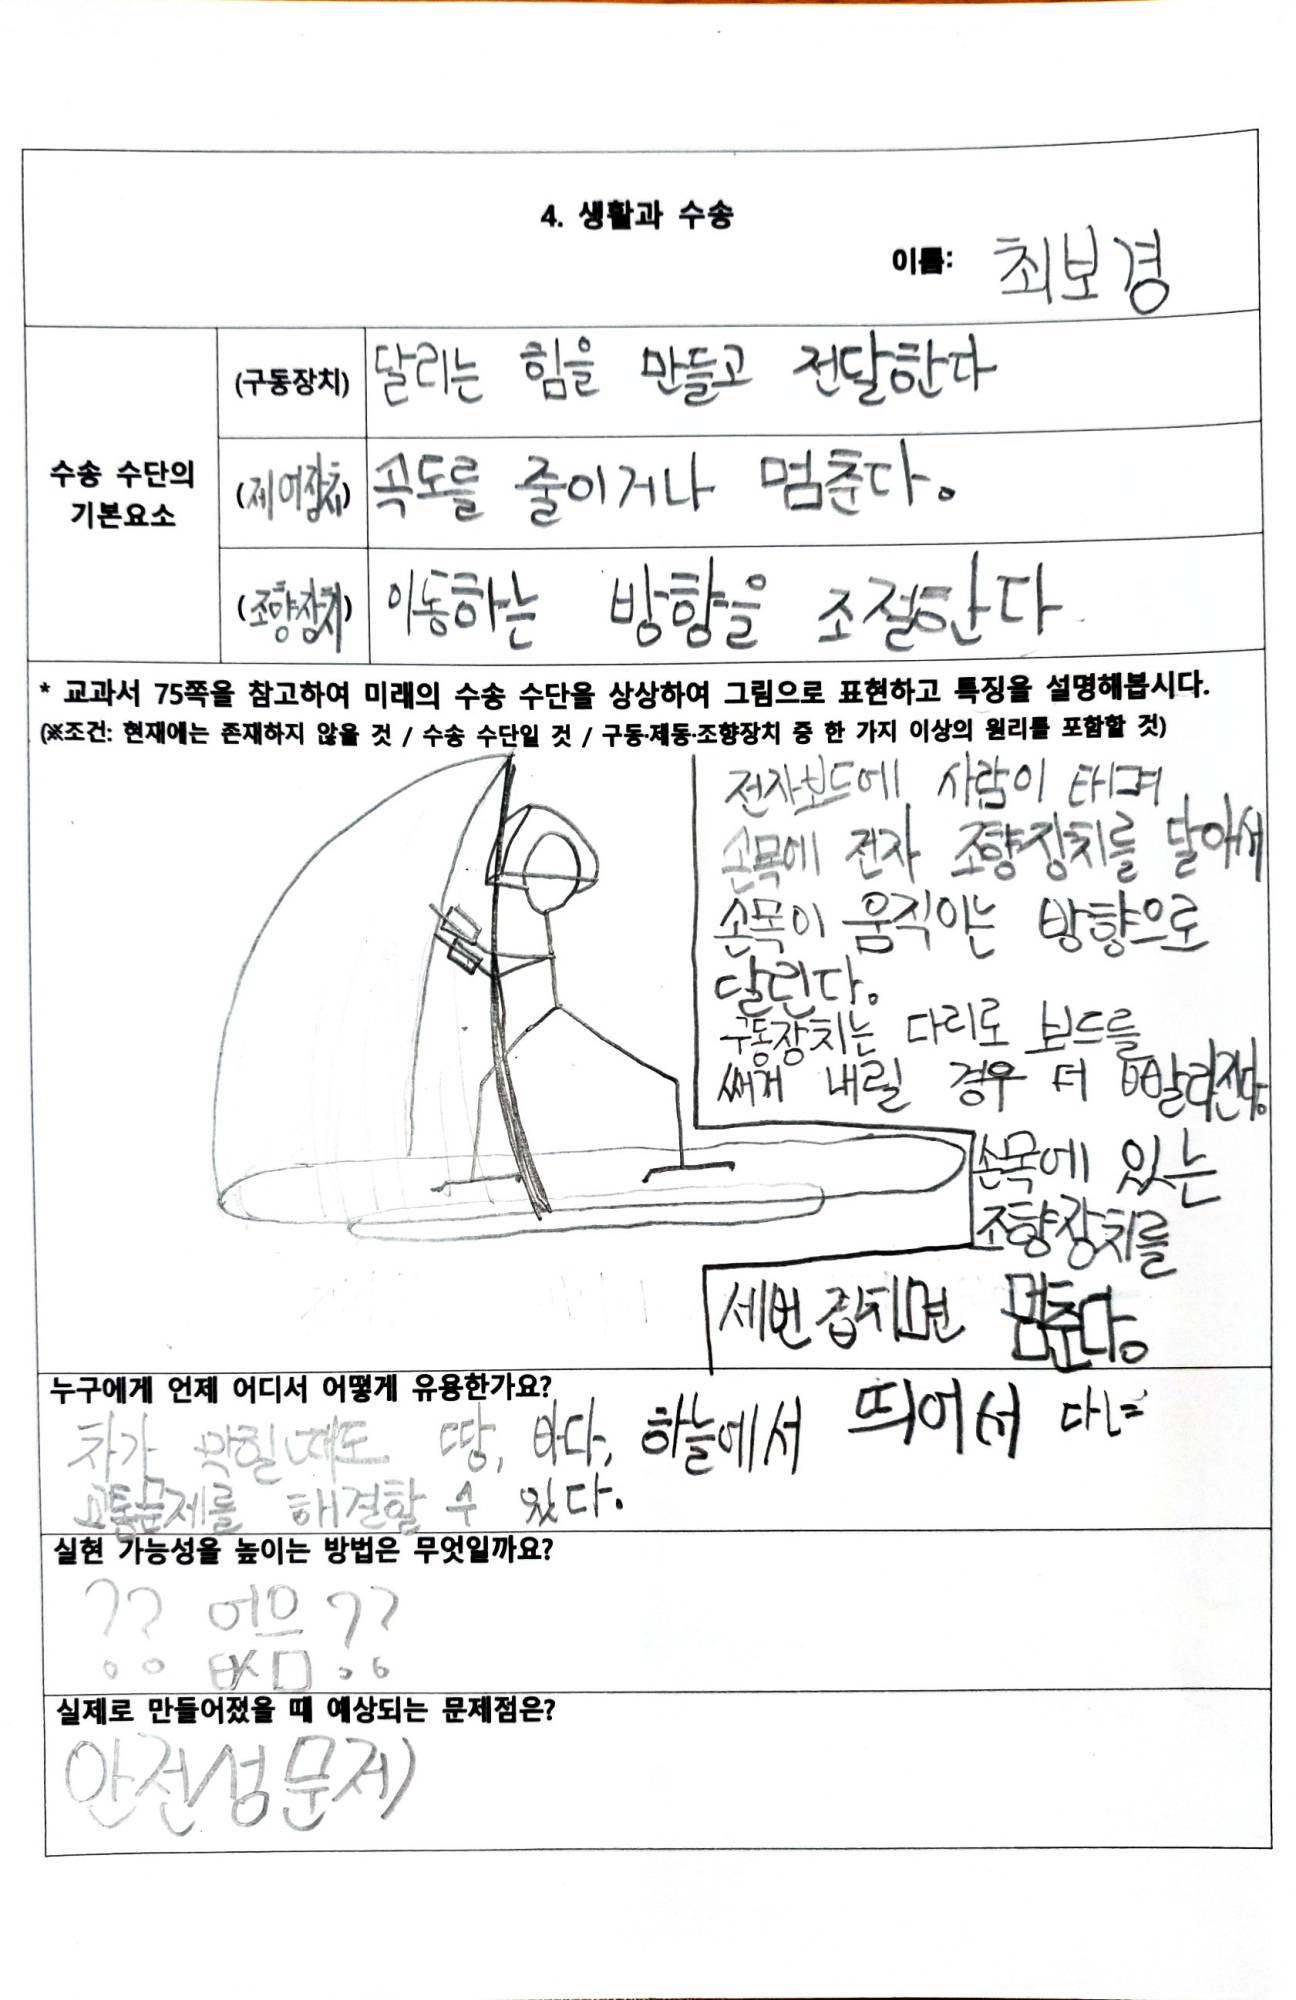 4. 생활과 수송
이름: 최보경
수송 수단의
기본요소
(구동장치) 달리는 힘을 만들고 전달한다
(제어장치) 속도를 줄이거나 멈춘다.
(조향장치) 이동하는 방향을 조절한다
* 교과서 75쪽을 참고하여 미래의 수송 수단을 상상하여 그림으로 표현하고 특징을 설명해봅시다.
(※조건: 현재에는 존재하지 않을 것 / 수송 수단일 것 / 구동·제동·조향장치 중 한 가지 이상의 원리를 포함할 것)
전자보드에 사람이 타며
손목에 전자 조향장치를 달아서
손목이 움직이는 방향으로
달린다.
구동장치는 다리로 보드를
쌔게 내릴 경우 더 빨라진다.
손목에 있는
조향장치를
세번 겹치면 멈춘다.
누구에게 언제 어디서 어떻게 유용한가요?
차가 막힐때도 땅, 바다, 하늘에서 띄어서 다녀
교통문제를 해결할 수 있다.
실현 가능성을 높이는 방법은 무엇일까요?
?? 없음 ??
실제로 만들어졌을 때 예상되는 문제점은?
안전성문제)